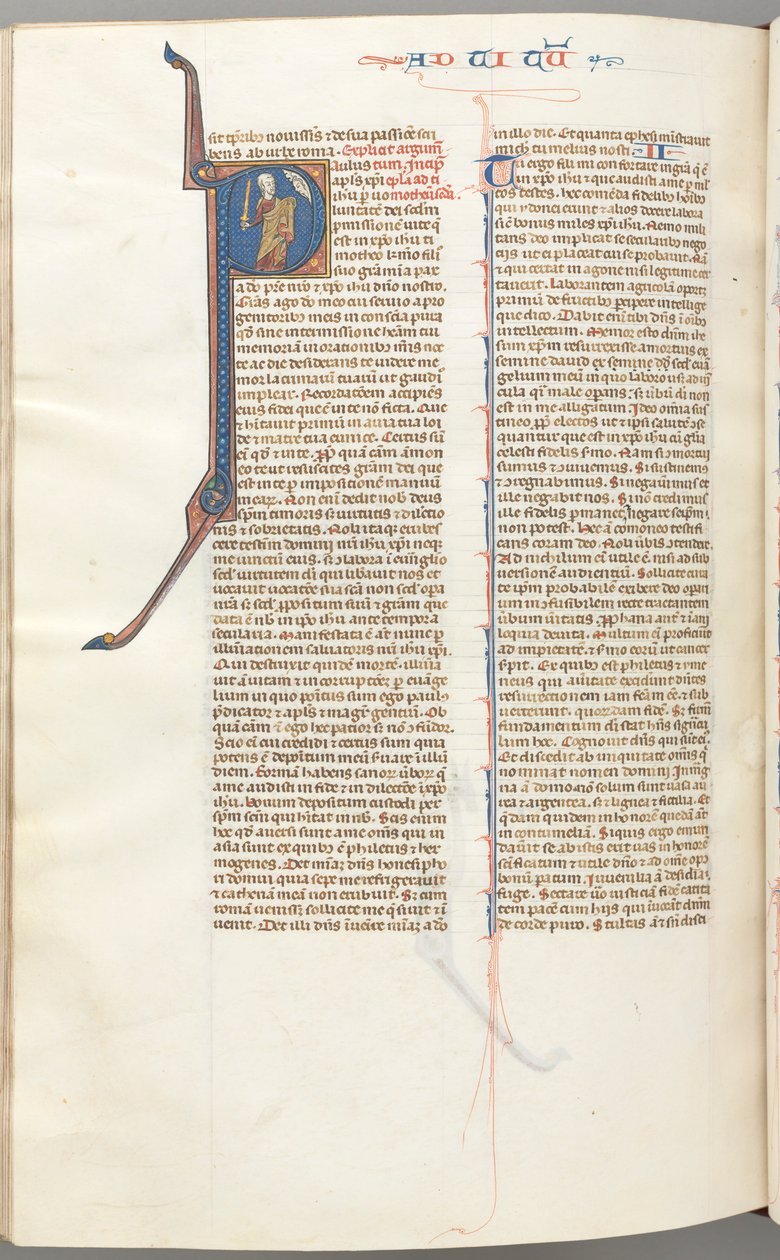 AD TI TIM̄
sit tp̄ribꝫ nouissīs ⁊ de sua passiōe sci
bens ab urbe roma. Explicit argum̄
tum. Incip̄
Paulus
apl̄s xp̄i ep̄la ad ti
ih̄u p uo motheū scd̄a.
luntatē dei scd̄m
ꝓmissionē uite q̄
est in xp̄o ih̄u ti
motheo k̄mo fili
suo grā mīa pax
a dō pr̄e nr̄o ⁊ xp̄o ih̄u dn̄o nostro.
Gr̄as ago dō meo cui seruio a pro
genitoribꝫ meis in conscīa pura
qd̄ sine intermissione hēam tui
memoriā in orationibꝫ mīs noc
te ac die desiderans te uidere me
mor lacrimarū tuarū ut gaudī
implear. Recordatōem accipiēs
eius fidei que ē in te nō ficta. Que
⁊ hītauit primū in auia tua loi
de ⁊ matre tua eunice. Certus sū
eī qd̄ ⁊ in te. Ꝓꝑ quā cām āmon
eo te ut resuscites grām dei que
est in te ꝑ impositionē manuū
mearꝝ. Non enī dedit nob̄ deus
spm̄ timoris sꝫ uirtutis ⁊ dilectio
nis ⁊ sobrietatis. Noli itaqꝫ erubes
cere testīm domini nr̄i ih̄u xp̄i neqꝫ
me uinctū eius. sꝫ labora ī euāglio
scd̄ uirtutem dī qui libauit nos et
uocauit uocatōe sua scā non scd̄ opa
nr̄a sꝫ scd̄ ꝓpositum suū ⁊ grām que
data ē nb̄ in xp̄o ih̄u ante tempora
secularia. Manifestata ē aūt nunc p
illuīationem saluatoris nr̄i ih̄u xp̄i.
Qui destruxit quidē mortē. illuīa
uit aūt uitam ⁊ in corruptōeꝫ p euāge
lium in quo poītus sum ego paulꝰ
p̄dicator ⁊ apl̄s ⁊ magr̄ gentiū. Ob
quā cām ⁊ ego hec patior sꝫ nō ↄfūdor.
Scio eī cui credidi ⁊ certus sum quia
potens ē depoītum meū ẜuare ī illū
diem. Formā habens sanorꝝ ūborꝝ q̄
a me audisti in fide ⁊ in dilectōe ī xp̄o
ih̄u. bonum depositum custodi per
spm̄ scm̄ qui hītat in nb̄. Scis enim
hec qd̄ auersi sunt a me om̄s qui in
asia sunt ex quibꝫ ē philetꝰ ⁊ her
mogenes. Det mīaꝫ dn̄s honesipho
ri domui quia sepe me refrigerauit
⁊ cathenā meā non erubuit. Sꝫ cum
romā uenissꝫ sollicite me q̄siuit ⁊ ī
uenit. Det illi dn̄s īuēire mīaꝫ a dō
in illo die. Et quanta ephesi mīstrauit
mich̄ tu melius nosti. II
Tu ergo fili mi confortare in grā q̄ ē
in xp̄o ih̄u ⁊ que audisti a me p ml̄
tos testes. hec comēda fidelibꝫ hoībꝫ
qui ydonei erunt ⁊ alios docere labora
sic bonus miles xp̄i ih̄u. Nemo mili
tans deo implicat se secularibꝫ nego
cijs ut ei placeat cui se probauit. Nā
⁊ qui certat in agone nisi legitime cer
tauerit. Laborantem agricolā oportꝫ
primū de fructibꝫ pcipere intellige
que dico. Dabit enī tibi dn̄s ī oībꝫ
intellectum. Memor esto dn̄m ih̄e
sum xp̄m resurrexisse a mortuis ex
semine dauid ex semine dd̄ scd̄ euā
gelium meū in quo laboro usqꝫ ad uī
cula qͥ male operans: sꝫ ūbū dī non
est in me alligatum. Ideo omīa sus
tineo ꝓꝑ electos ut ⁊ ipsi salutē ↄse
quantur que est in xp̄o ih̄u cū glīa
celesti fidelis ẜmo. Nam si ↄmortui
sumus ⁊ ↄuiuemus. Si sustinemꝰ
⁊ ↄregnabimus. Si negauīmus et
ille negabit nos. Si nō credimus
ille fidelis permanet negare seipm̄.
non potest. Hec āmoneo testifi
cans coram deo. Noli ūbis ↄtendere.
Ad nichilum eī utile ē. nisi ad sub
uersionē audientiū. Sollicite cura
te ipm̄ probabilē exibere deo opari
um inↄfusibilem recte tractantem
ūbum ūitatis. Ꝓphana aūt ⁊ īani
loquia deuita. Multum eī proficiūt
ad impietatē. ⁊ ẜmo eorū ut cancer
ẜpit. Ex quibꝫ est philetus ⁊ yme
neus qui a ūitate exciderūt dn̄tes
resurrectionem iam fc̄am ēe. ⁊ sub
uerterunt. quorūdam fidē. Sꝫ firm̄
fundamentum dī stat hn̄s signacu
lum hec. Cognouit dn̄s qui sūt eiꝰ.
Et discedit ab iniquitate om̄is q̄
nominat nomen domini In mag
na aūt domo nō solum sunt uasa au
rea ⁊ argentea. sꝫ ⁊ lignea ⁊ fictilia. Et
q̄dam quidem in honorē quedā aūt
in contumeliā. Si quis ergo emun
dauīt se ab istis erit uas in honorē
sc̄ificatum ⁊ utile dn̄o ⁊ ad om̄e opꝰ
bonū paratum. Iuuenilia aūt desidia
fuge. Sectare ūo iusticiā fidē carita
tem pacē cum hijs qui īuocāt dnm̄
de corde puro. Stultas aūt ⁊ sn̄ disci